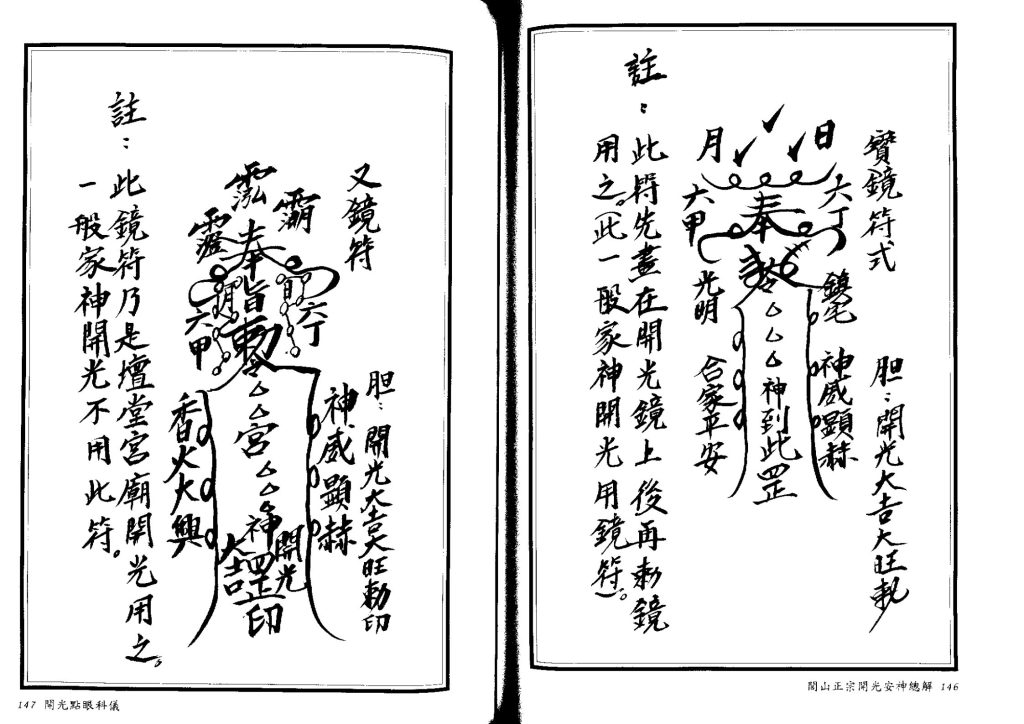 寶鏡符式
胆：開光大吉大旺勅
日
月
六丁
六甲
奉
勅令
△△△神到此罡
鎮宅
光明
神威顯赫
合家平安
註：此符先畫在開光鏡上後再勅鏡
用之。（此一般家神開光用鏡符）。
閭山正宗開光安神總解 146
又鏡符
胆：開光大吉大旺勅印
奉旨勅令
六丁
六甲
日
月
△△宮△△神罡印
神威顯赫
香火大興
開光
大吉
註：此鏡符乃是壇堂宮廟開光用之。
一般家神開光不用此符。
147 開光點眼科儀